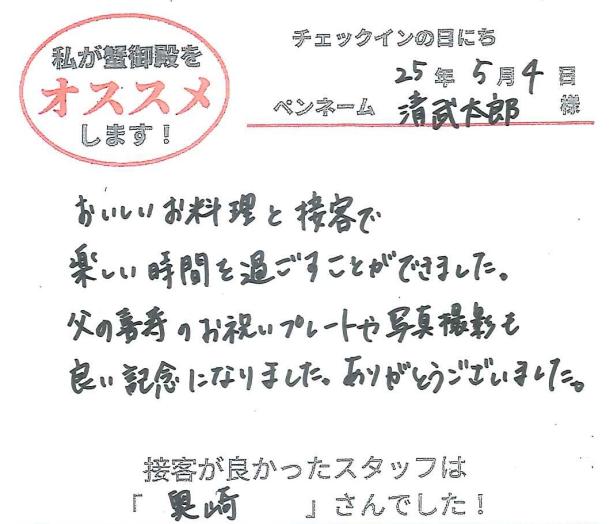 私が蟹御殿を
オススメ
します！
チェックインの日にち
25年5月4日
ペンネーム 清武太郎 様
おいしいお料理と接客で
楽しい時間を過ごすことができました。
父の喜寿のお祝いプレートや写真撮影も
良い記念になりました。ありがとうございました。
接客が良かったスタッフは
「 奥崎 」さんでした！